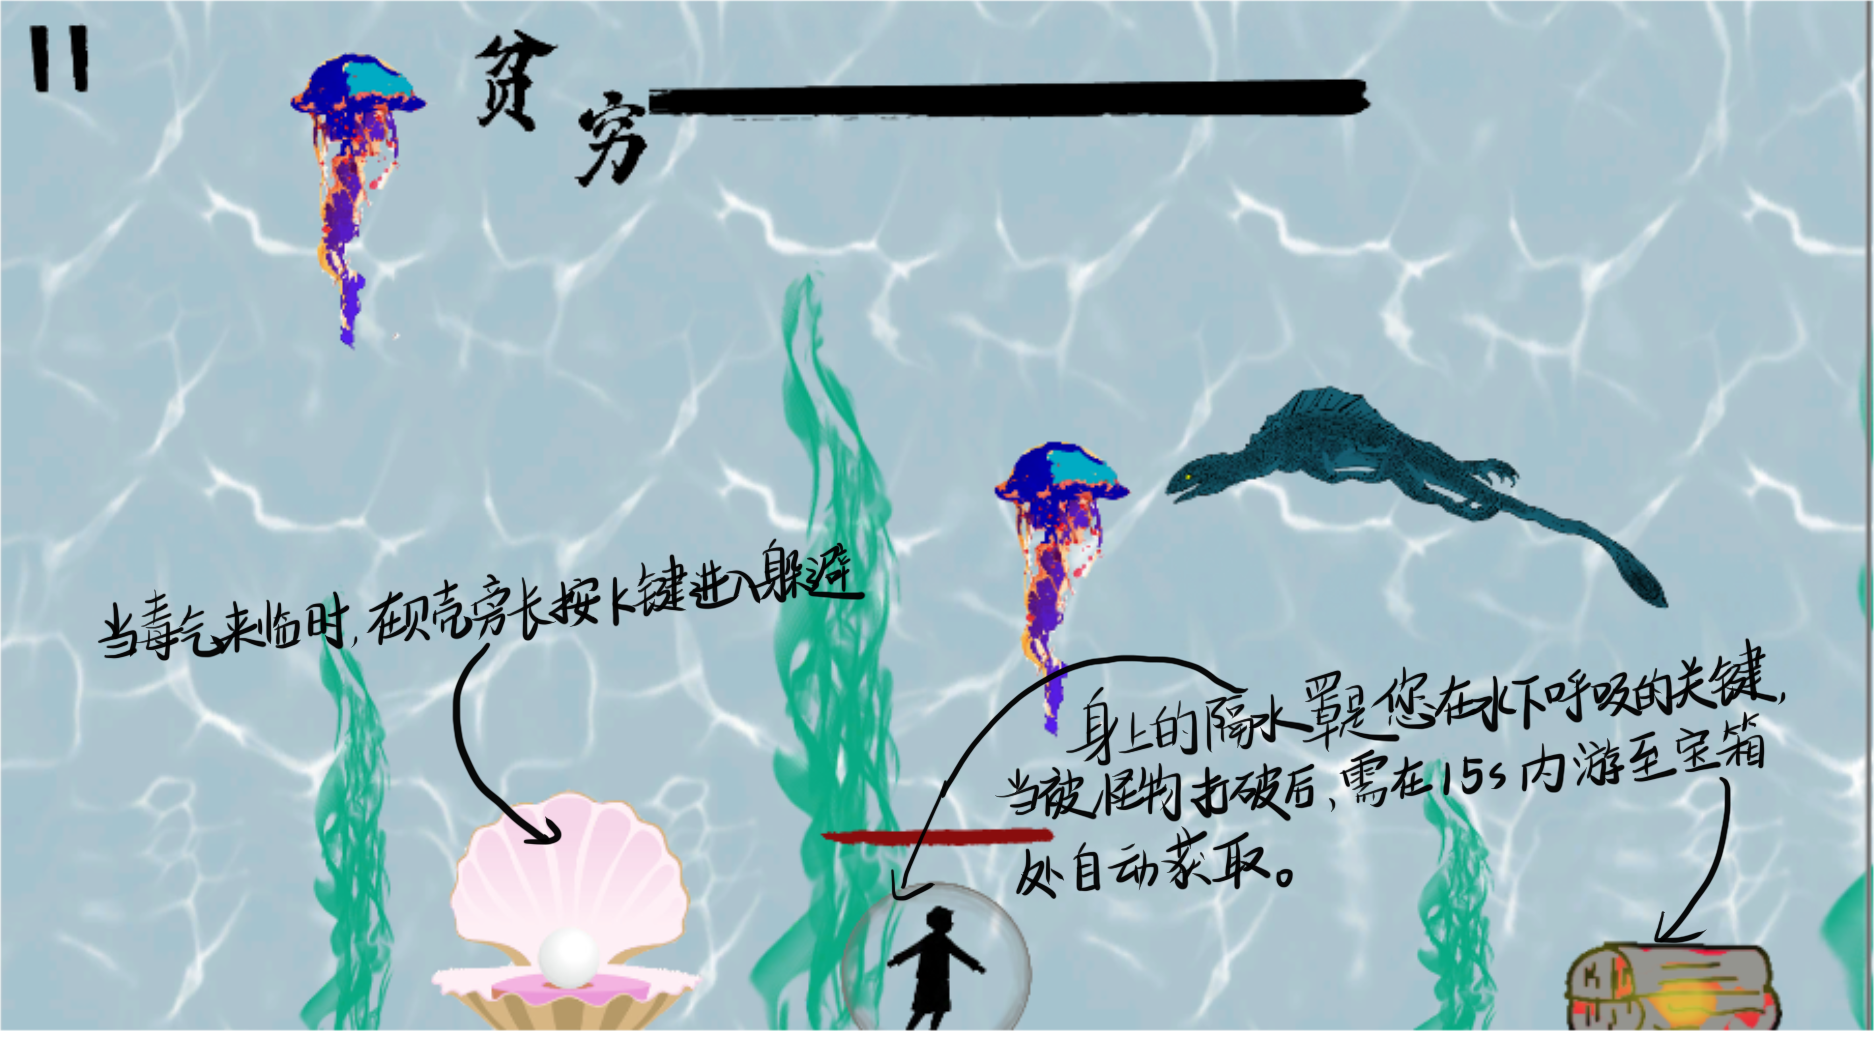 贫穷
当毒气来临时,在贝壳旁长按K键进入躲避
身上的隔水罩是您在水下呼吸的关键,
当被怪物打破后,需在15s内游至宝箱
处自动获取。